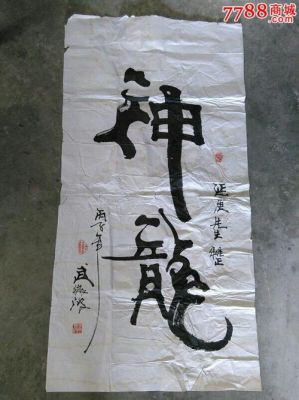 7788商城
神龍
延庚先生雅正
丙子年